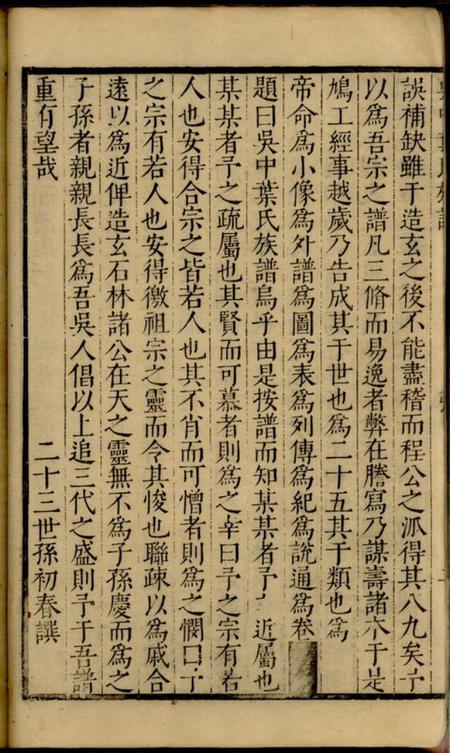 誤補缺雖于造玄之後不能盡稽而程公之派得其八九矣予
以為吾宗之譜凡三脩而易逸者弊在謄寫乃謀壽諸木于是
鳩工經事越歲乃告成其于世也為二十五其于類也為
帝命為小像為外譜為圖為表為列傳為紀為說通為卷
題曰吳中葉氏族譜烏乎由是按譜而知某某者予之近屬也
某某者予之疏屬也其賢而可慕者則為之幸曰予之宗有若
人也安得合宗之皆若人也其不肖而可憎者則為之憫曰予
之宗有若人也安得徼祖宗之靈而令其悛也聯疎以為戚合
遠以為近俾造玄石林諸公在天之靈無不為子孫慶而為之
子孫者親親長長為吾吳人倡以上追三代之盛則予于吾譜
重有望哉
二十三世孫初春譔